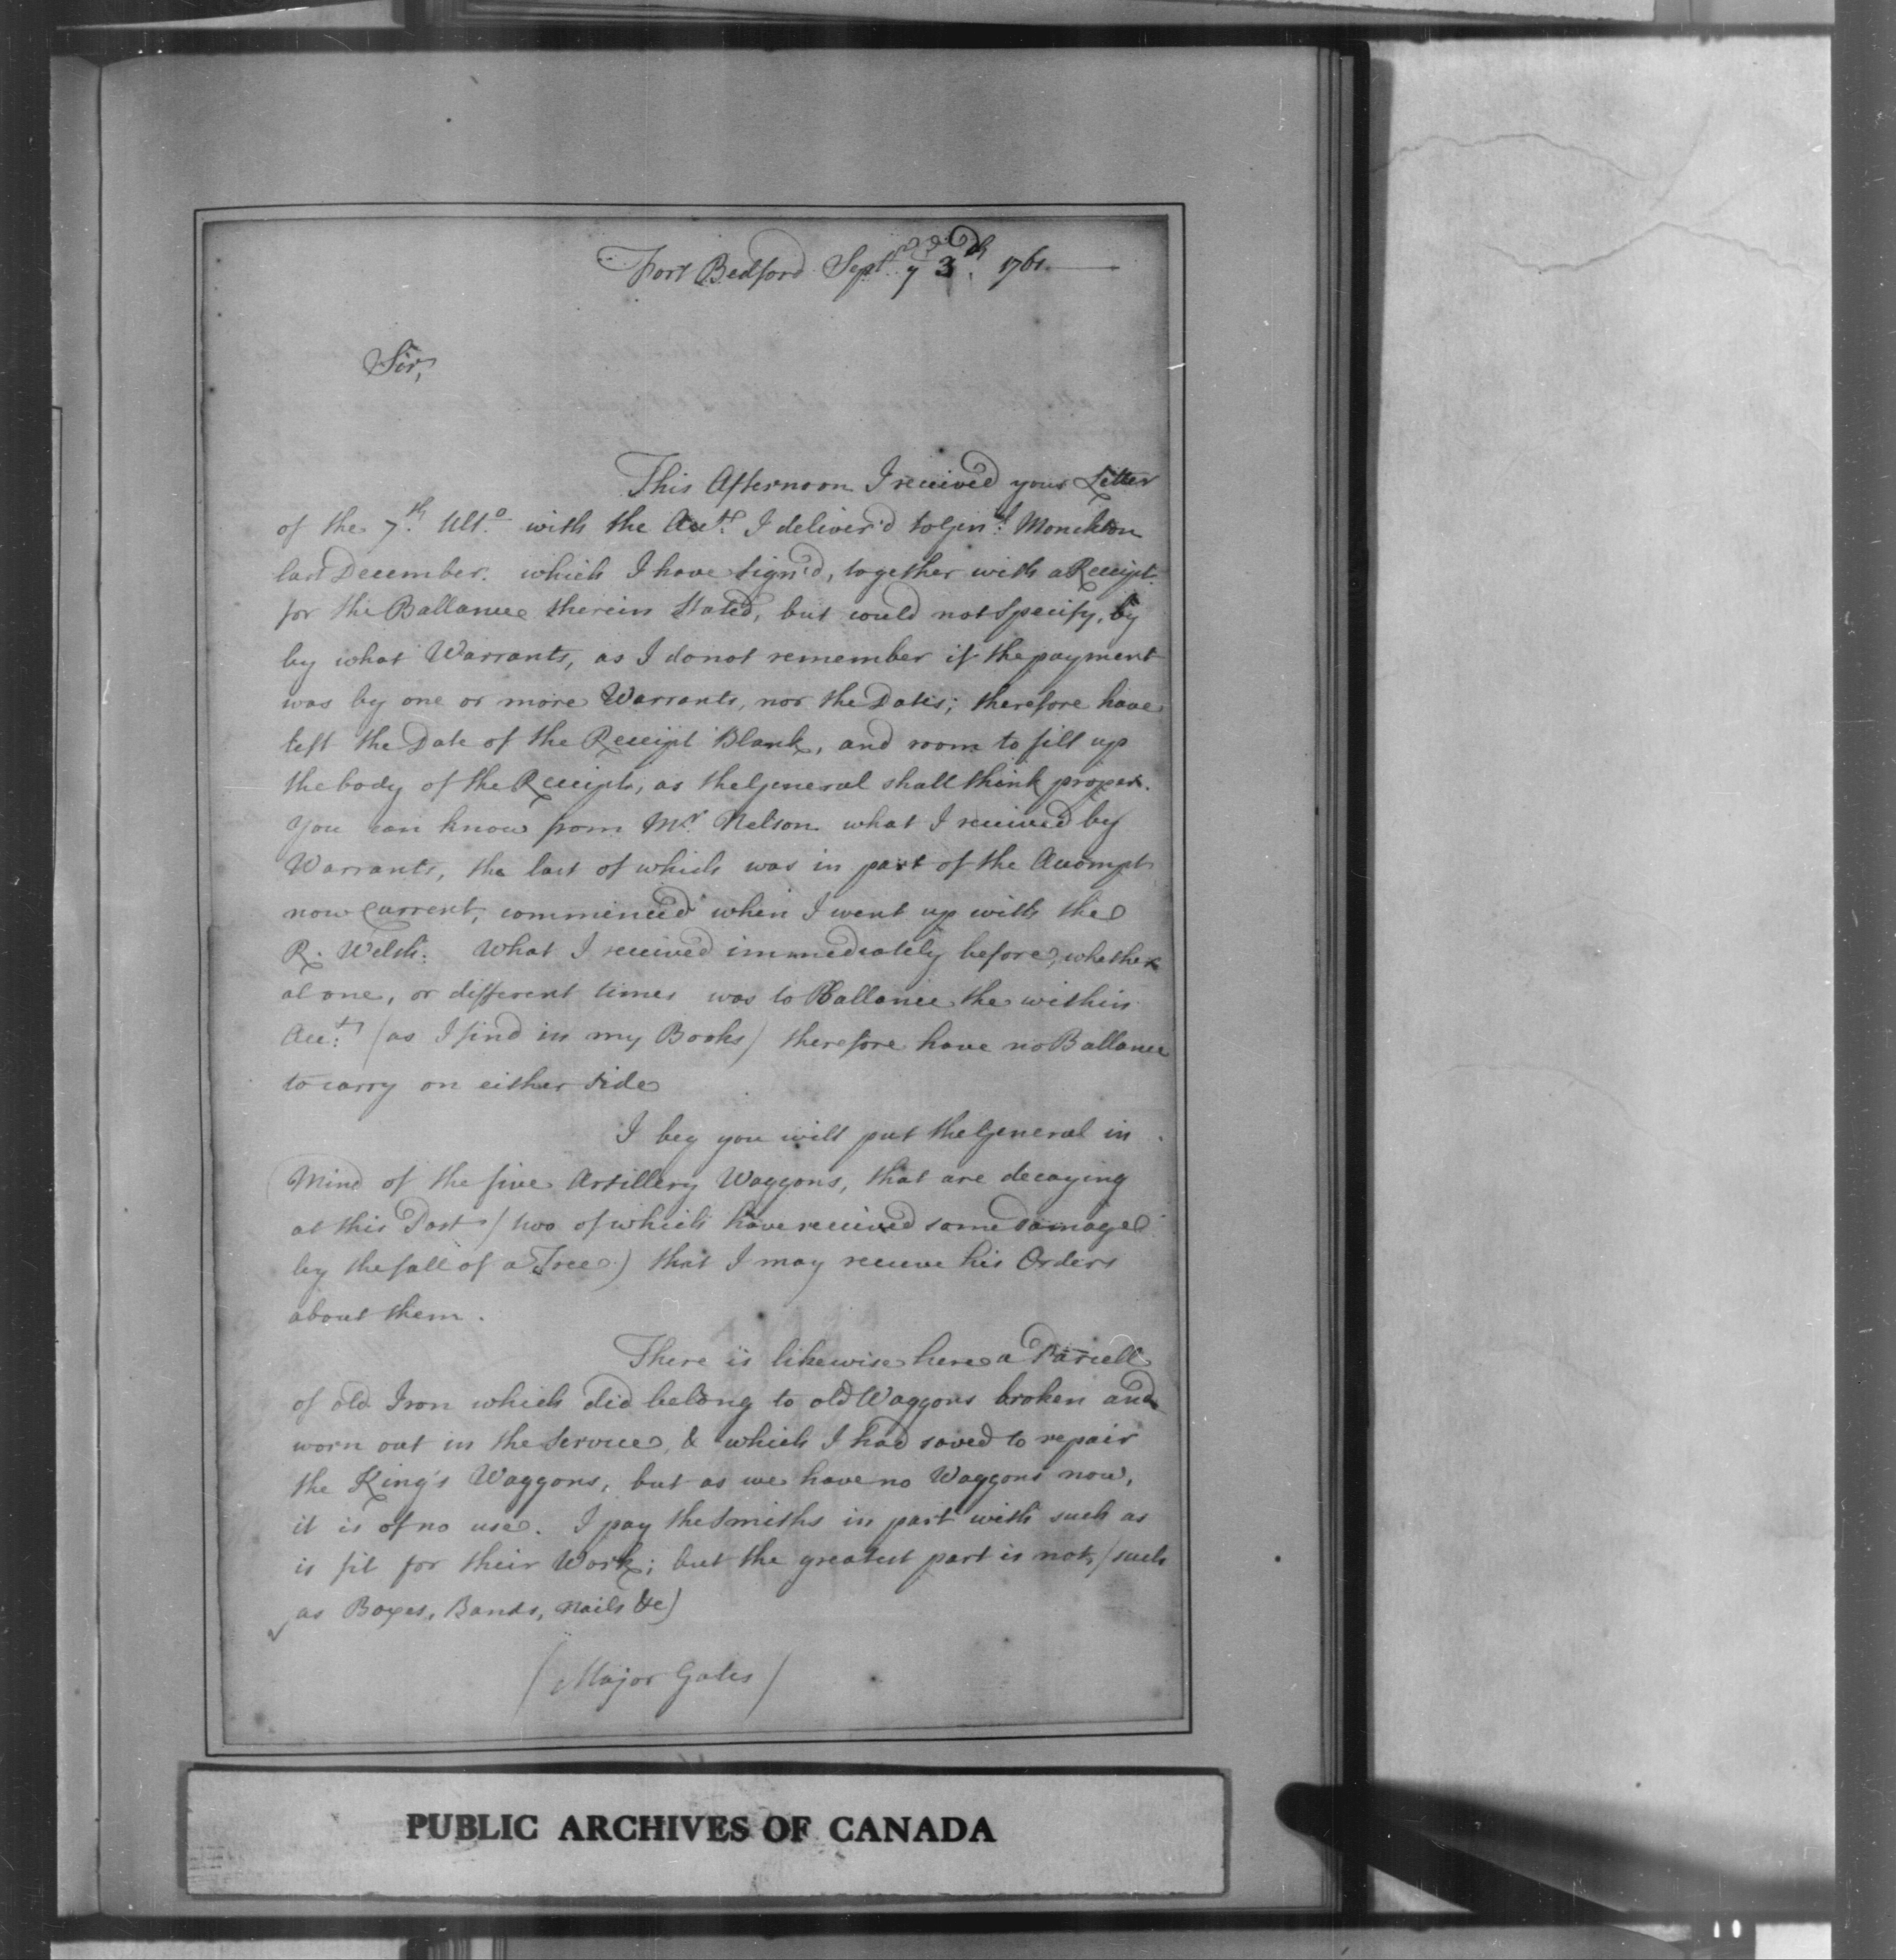 Fort Bedford Sept.r y 3.d 1761.
Sir,
This Afternoon I received your Letter
of the 7.th Ult.o with the Acc.t I deliver'd to Gen.l Monckton
last December. which I have sign'd, together with a Receipt
for the Ballance therein Stated, but could not Specify, by
by what Warrants, as I do not remember if the payment
was by one or more Warrants, nor the Dates; therefore have
left the Date of the Receipt Blank, and room to fill up
the body of the Receipt, as the General shall think proper.
You can know from M.r Nelson what I received by
Warrants, the last of which was in part of the Accompt
now Current, commenced when I went up with the
R. Welsh. What I received immediately before, whether
at one, or different times was to Ballance the within
Acc:t (as I find in my Books) therefore have no Ballance
to carry on either side
I beg you will put the General in
Mind of the five Artillery Waggons, that are decaying
at this Post (two of which have received some damage
by the fall of a Tree) that I may receive his Orders
about them.
There is likewise here a Parcell
of old Iron which did belong to old Waggons broken and
worn out in the Service, & which I had saved to repair
the King's Waggons, but as we have no Waggons now,
it is of no use. I pay the Smiths in part with such as
is fit for their Work; but the greatest part is not, (such
as Boxes, Bands, Nails &c)
(Major Gates)
PUBLIC ARCHIVES OF CANADA